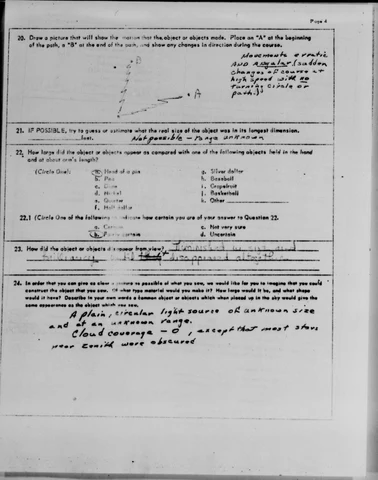 Page 4
20. Draw a picture that will show the motion that the object or objects made. Place an "A" at the beginning
of the path, a "B" at the end of the path, and show any changes in direction during the course.
B
A
Movements erratic
AND angular (sudden
changes of course at
high speed with no
turning circle or
path.)
21. IF POSSIBLE, try to guess or estimate what the real size of the object was in its longest dimension.
feet. Not possible - range unknown
22. How large did the object or objects appear as compared with one of the following objects held in the hand
and at about arm's length?
(Circle One): a. Head of a pin
b. Pea
c. Dime
d. Nickel
e. Quarter
f. Half dollar
g. Silver dollar
h. Baseball
i. Grapefruit
j. Basketball
k. Other
22.1 (Circle One of the following to indicate how certain you are of your answer to Question 22.
a. Certain
b. Fairly certain
c. Not very sure
d. Uncertain
23. How did the object or objects disappear from view? Diminished in size and
brilliancy until disappeared altogether
24. In order that you can give as clear a picture as possible of what you saw, we would like for you to imagine that you could
construct the object that you saw. Of what type material would you make it? How large would it be, and what shape
would it have? Describe in your own words a common object or objects which when placed up in the sky would give the
same appearance as the object which you saw.
A plain, circular light source of unknown size
and at an unknown range.
Cloud coverage - 0, except that most stars
near zenith were obscured